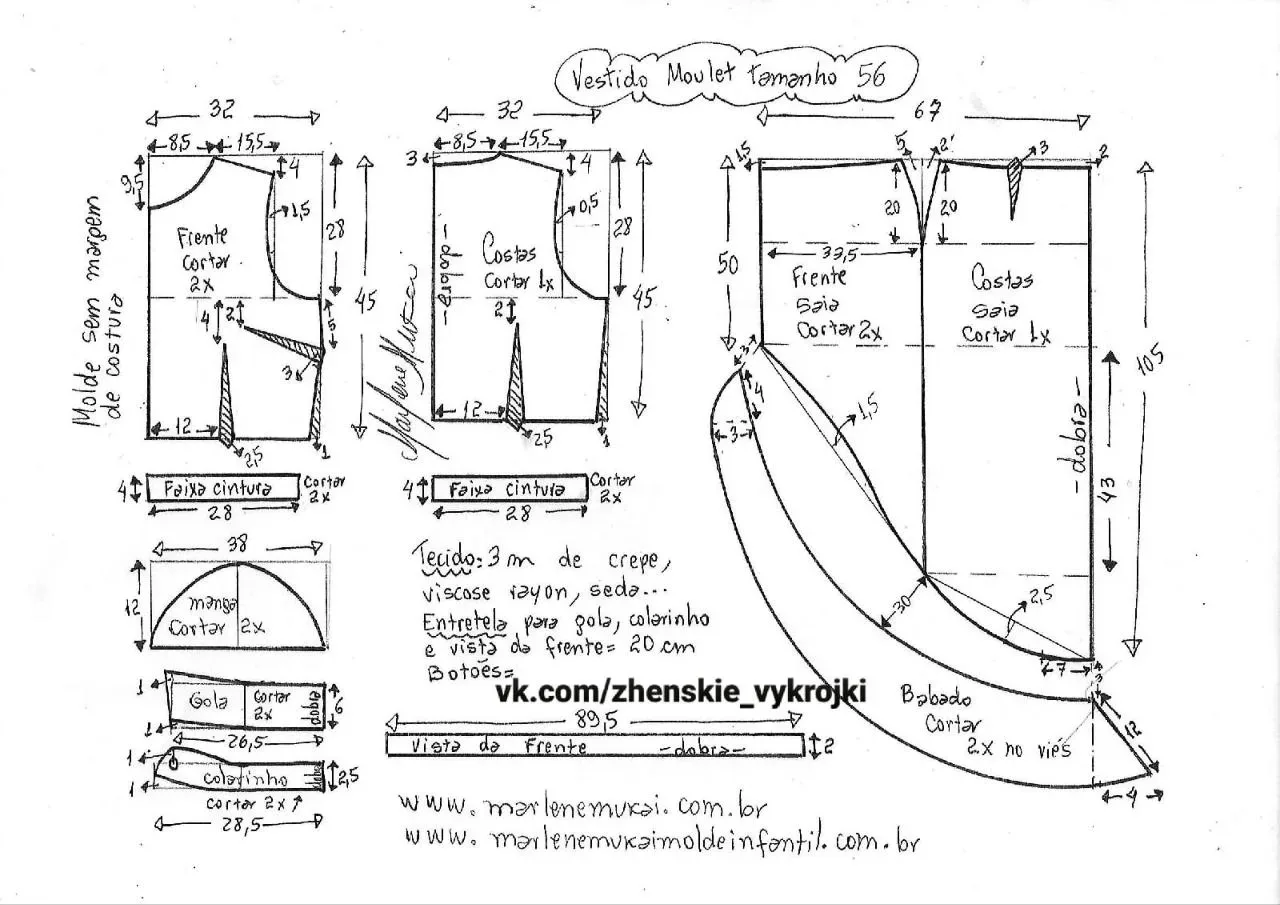 Vestido Moulet tamanho 56
32
8,5 15,5
4
9,5
1,5
28
45
Frente
cortar
2x
4
2
5
3
12
2,5
1
Molde sem margem
de costura
32
8,5 15,5
3
4
0,5
28
45
-dobra-
Costas
Cortar 1x
2
12
2,5
1
Marlene Mukai
67
1,5
5
2
3
2
20
20
50
33,5
Frente
saia
Cortar 2x
Costas
saia
Cortar 1x
105
-dobra-
43
3
4
3
1,5
30
2,5
7
3
12
4
Babado
Cortar
2x no viés
4
Faixa cintura
Cortar
2x
28
4
Faixa cintura
Cortar
2x
28
38
12
manga
Cortar 2x
1
Gola
Cortar
2x
dobra
6
1
26,5
1
Colarinho
dobra
2,5
1
cortar 2x
28,5
Tecido: 3 m de crepe,
viscose rayon, seda...
Entretela para gola, colarinho
e vista da frente = 20 cm
Botões=
vk.com/zhenskie_vykrojki
89,5
Vista da Frente -dobra-
2
www.marlenemukai.com.br
www.marlenemukaimoldeinfantil.com.br